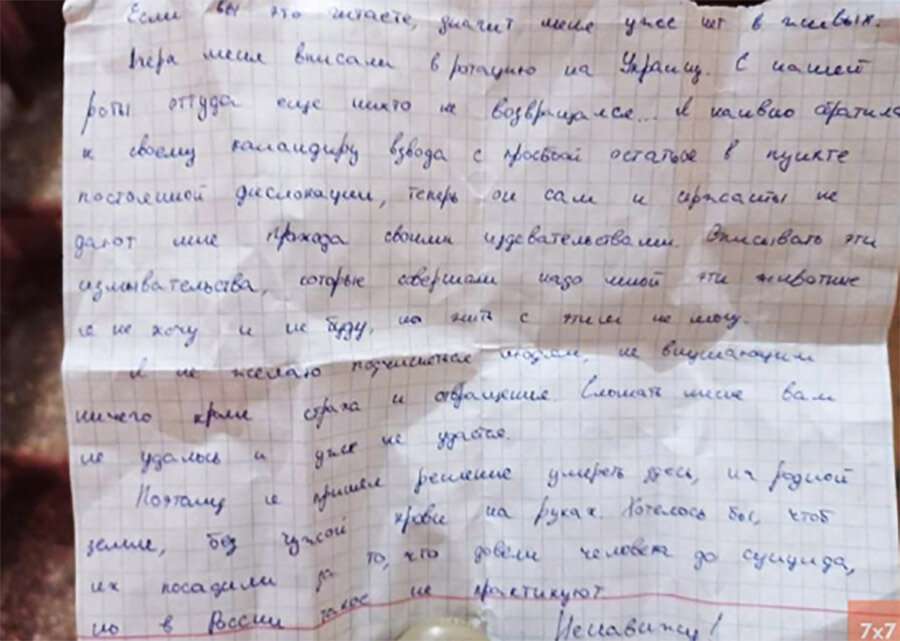 Если вы это читаете, значит меня уже нет в живых.
Вчера меня вписали в ротацию на Украину. С нашей
роты оттуда еще никто не возвращался... Я наивно обратился
к своему командиру взвода с просьбой остаться в пункте
постоянной дислокации, теперь он сам и сержанты не
дают мне прохода своими издевательствами. Описывать эти
измывательства, которые совершали надо мной эти животные
я не хочу и не буду, но жить с этим не могу.
Я не желаю подчиняться людям, не внушающим
ничего кроме страха и отвращения Сломать меня вам
не удалось и уже не удастся.
Поэтому я пришел решение умереть здесь, на родной
земле, без чужой крови на руках. Хотелось бы, чтоб
их посадили за то, что довели человека до суицида,
но в России такое не практикуют
Ненавижу!
7x7